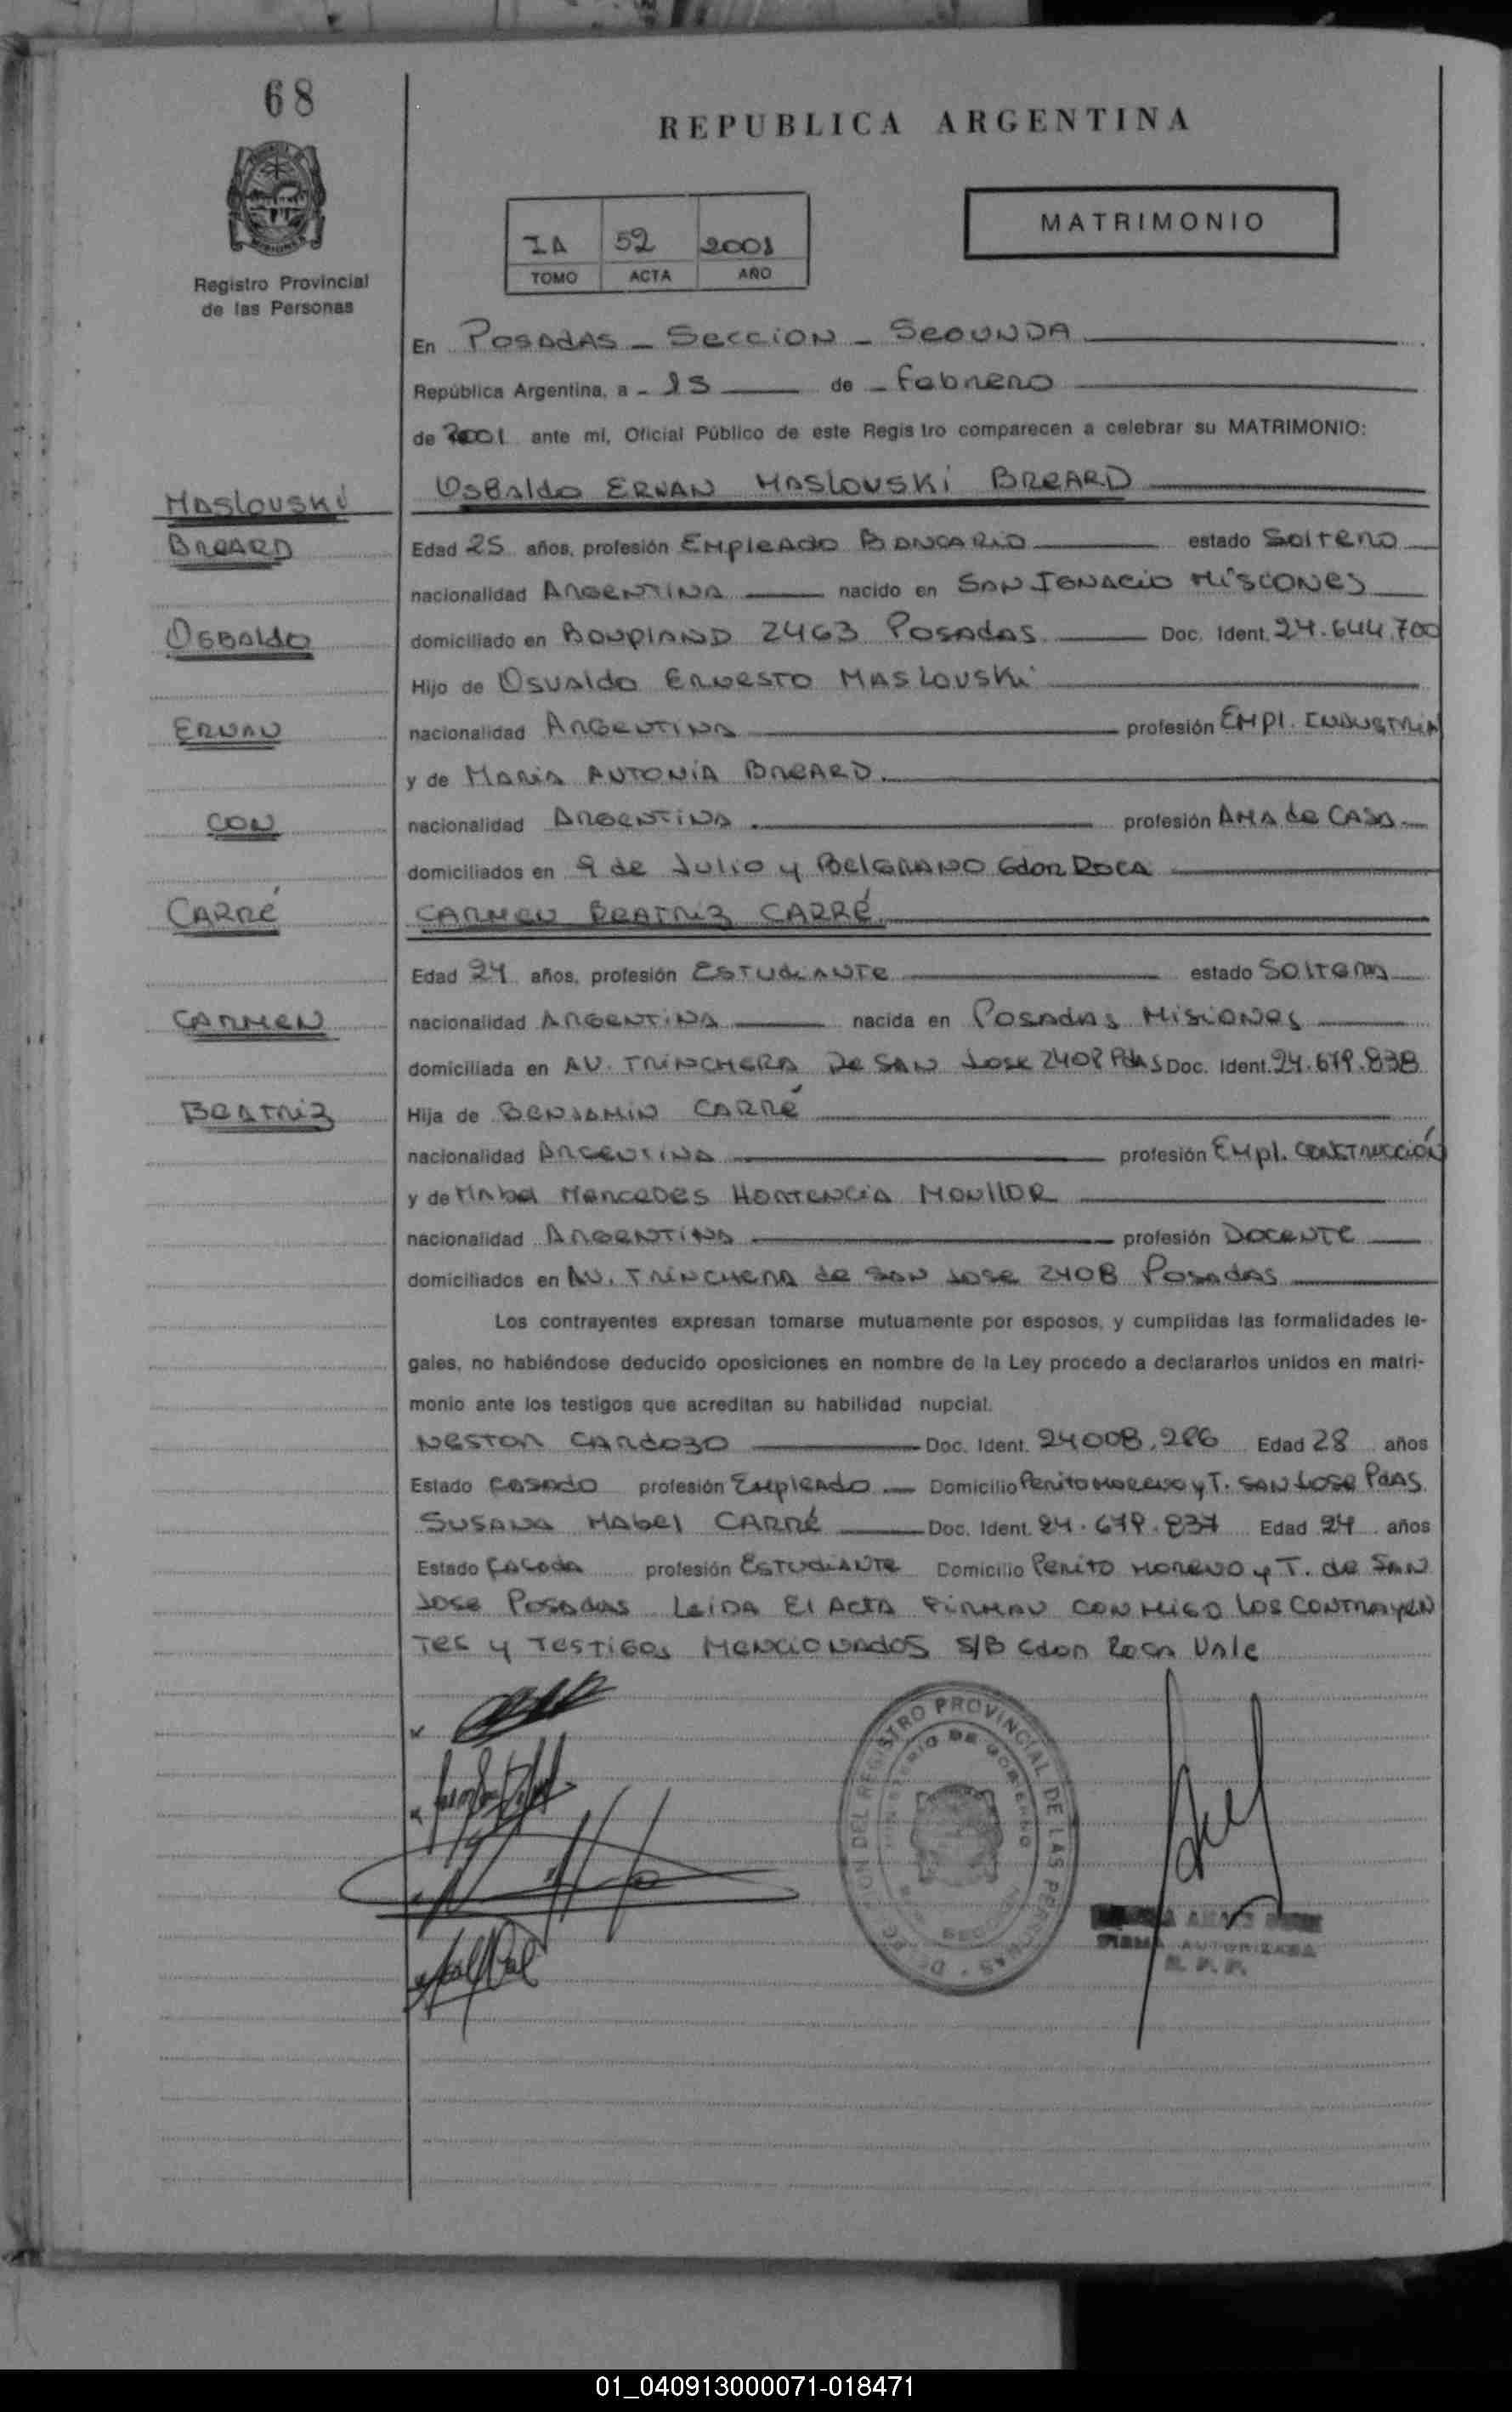 68
REPUBLICA ARGENTINA
MATRIMONIO
IA 52 2001
TOMO ACTA AÑO
Registro Provincial
de las Personas
En POSADAS - SECCION - SEGUNDA
República Argentina, a - 15 de - Febrero
de 2001 ante mi, Oficial Público de este Regis tro comparecen a celebrar su MATRIMONIO:
MASLOUSKI
OSBALDO ERNAN MASLOUSKI BREARD
BREARD
Edad 25 años, profesión EMPLEADO BANCARIO estado SOLTERO
nacionalidad ARGENTINA nacido en SAN IGNACIO MISIONES
OSBALDO
domiciliado en BONPLAND 2463 POSADAS Doc. Ident. 24.644.700
Hijo de OSVALDO ERNESTO MASLOUSKI
ERNAN
nacionalidad ARGENTINA profesión EMPL. INDUSTRIA
y de MARIA ANTONIA BREARD.
CON
nacionalidad ARGENTINA profesión AMA de CASA
domiciliados en 9 de JULIO y BELGRANO Gdor ROCA
CARRÉ
CARMEN BEATRIZ CARRÉ
Edad 24 años, profesión ESTUDIANTE estado SOLTERA
CARMEN
nacionalidad ARGENTINA nacida en POSADAS MISIONES
domiciliada en AV. TRINCHERA DE SAN JOSE 2408 PdAS Doc. Ident. 24.679.838
BEATRIZ
Hija de BENJAMIN CARRÉ
nacionalidad ARGENTINA profesión EMPL. CONSTRUCCIÓN
y de MABEL MERCEDES HORTENCIA MONLLOR
nacionalidad ARGENTINA profesión DOCENTE
domiciliados en AV. TRINCHERA de SAN JOSE 2408 POSADAS
Los contrayentes expresan tomarse mutuamente por esposos, y cumplidas las formalidades le-
gales, no habiéndose deducido oposiciones en nombre de la Ley procedo a declararlos unidos en matri-
monio ante los testigos que acreditan su habilidad nupcial.
NESTOR CARDOZO Doc. Ident. 24008.286 Edad 28 años
Estado CASADO profesión EMPLEADO Domicilio PERITO MORENO y T. SAN JOSE PdAS.
SUSANA MABEL CARRÉ Doc. Ident. 24.679.837 Edad 24 años
Estado CASADA profesión ESTUDIANTE Domicilio PERITO MORENO y T. de SAN
JOSE POSADAS LEIDA EL ACTA FIRMAN CONMIGO LOS CONTRAYEN
TES y TESTIGOS MENCIONADOS S/B Gdor ROCA VALE
REGISTRO PROVINCIAL DE LAS PERSONAS
MINISTERIO DE GOBIERNO
MISIONES
FIRMA AUTORIZADA
R. P. P.
01_040913000071-018471